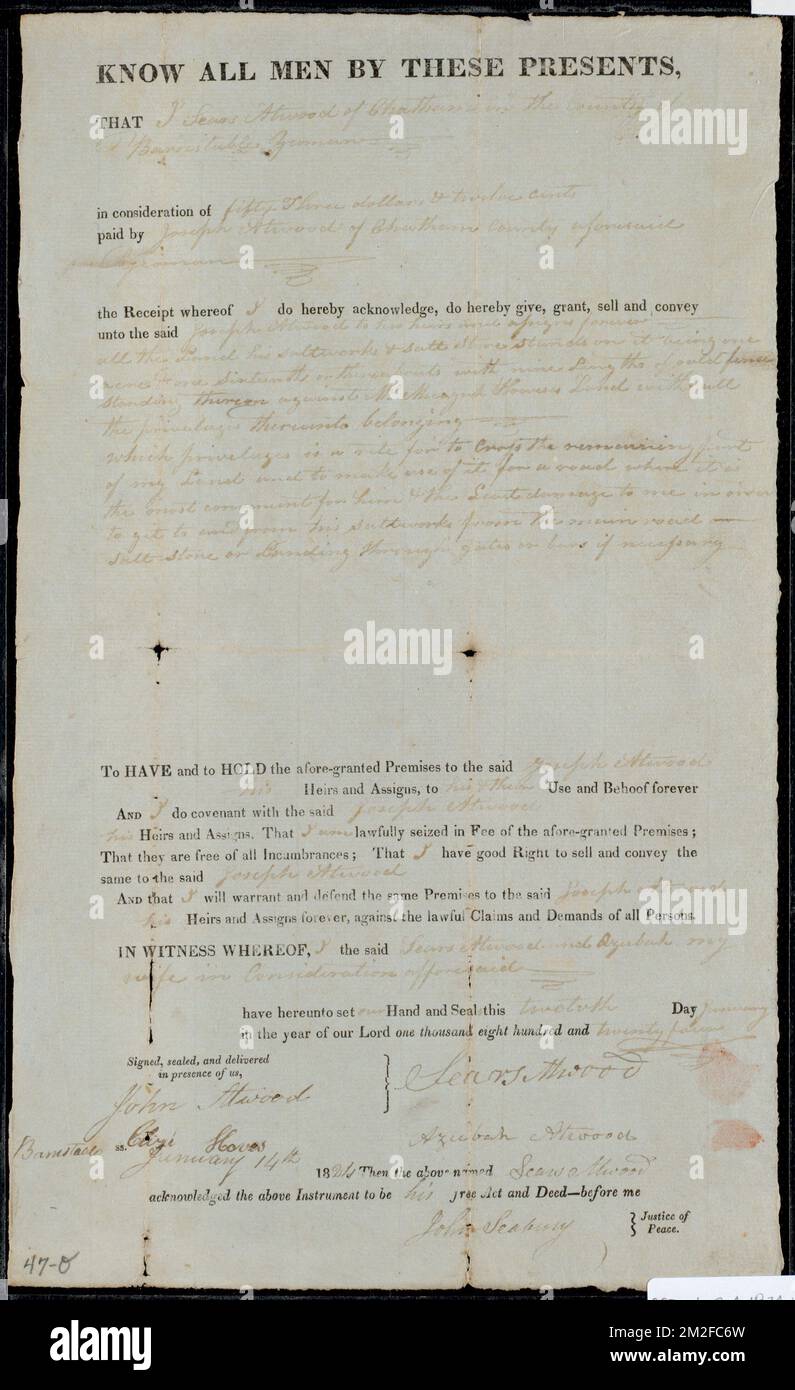 KNOW ALL MEN BY THESE PRESENTS,
THAT I Sears Atwood of Chatham in the County of
Barnstable Yeoman
in consideration of fifty Three dollars & twelve cents
paid by Joseph Atwood of Chatham County aforesaid
Yeoman
the Receipt whereof I do hereby acknowledge, do hereby give, grant, sell and convey
unto the said Joseph Atwood to his heirs and assigns forever
all the Land his saltworks & salt store stands on it being one
acre & one Sixteenth or thereabouts with nine Lengths of fence
standing thereon against Howeses Land with all
the privelages thereunto belonging
which privelages is a rite for to Cross the remaining part
of my Land and to make use of it for a road where it is
the most convenient for him & the Least damage to me in
to git to and from his saltworks from the main road
salt store or Landing through gates or bars if necessary
To HAVE and to HOLD the afore-granted Premises to the said Joseph Atwood
his Heirs and Assigns, to his & their Use and Behoof forever
AND I do covenant with the said Joseph Atwood
his Heirs and Assigns, That I am lawfully seized in Fee of the afore-granted Premises;
That they are free of all Incumbrances; That I have good Right to sell and convey the
same to the said Joseph Atwood
AND that I will warrant and defend the same Premises to the said Joseph Atwood
his Heirs and Assigns forever, against the lawful Claims and Demands of all Persons.
IN WITNESS WHEREOF, I the said Sears Atwood and Azubah my
wife in Consideration afforesaid
have hereunto set our Hand and Seal this twelvth Day January
in the year of our Lord one thousand eight hundred and twenty four
Signed, sealed, and delivered
in presence of us,
Sears Atwood
John Atwood
Azubah Atwood
Barnstable ss.
January 14th 1824 Then the above named Sears Atwood
acknowledged the above Instrument to be his free Act and Deed—before me
John Seabury Justice of
Peace.
47-0
alamy
Image ID: 2M2FC6W
www.alamy.com